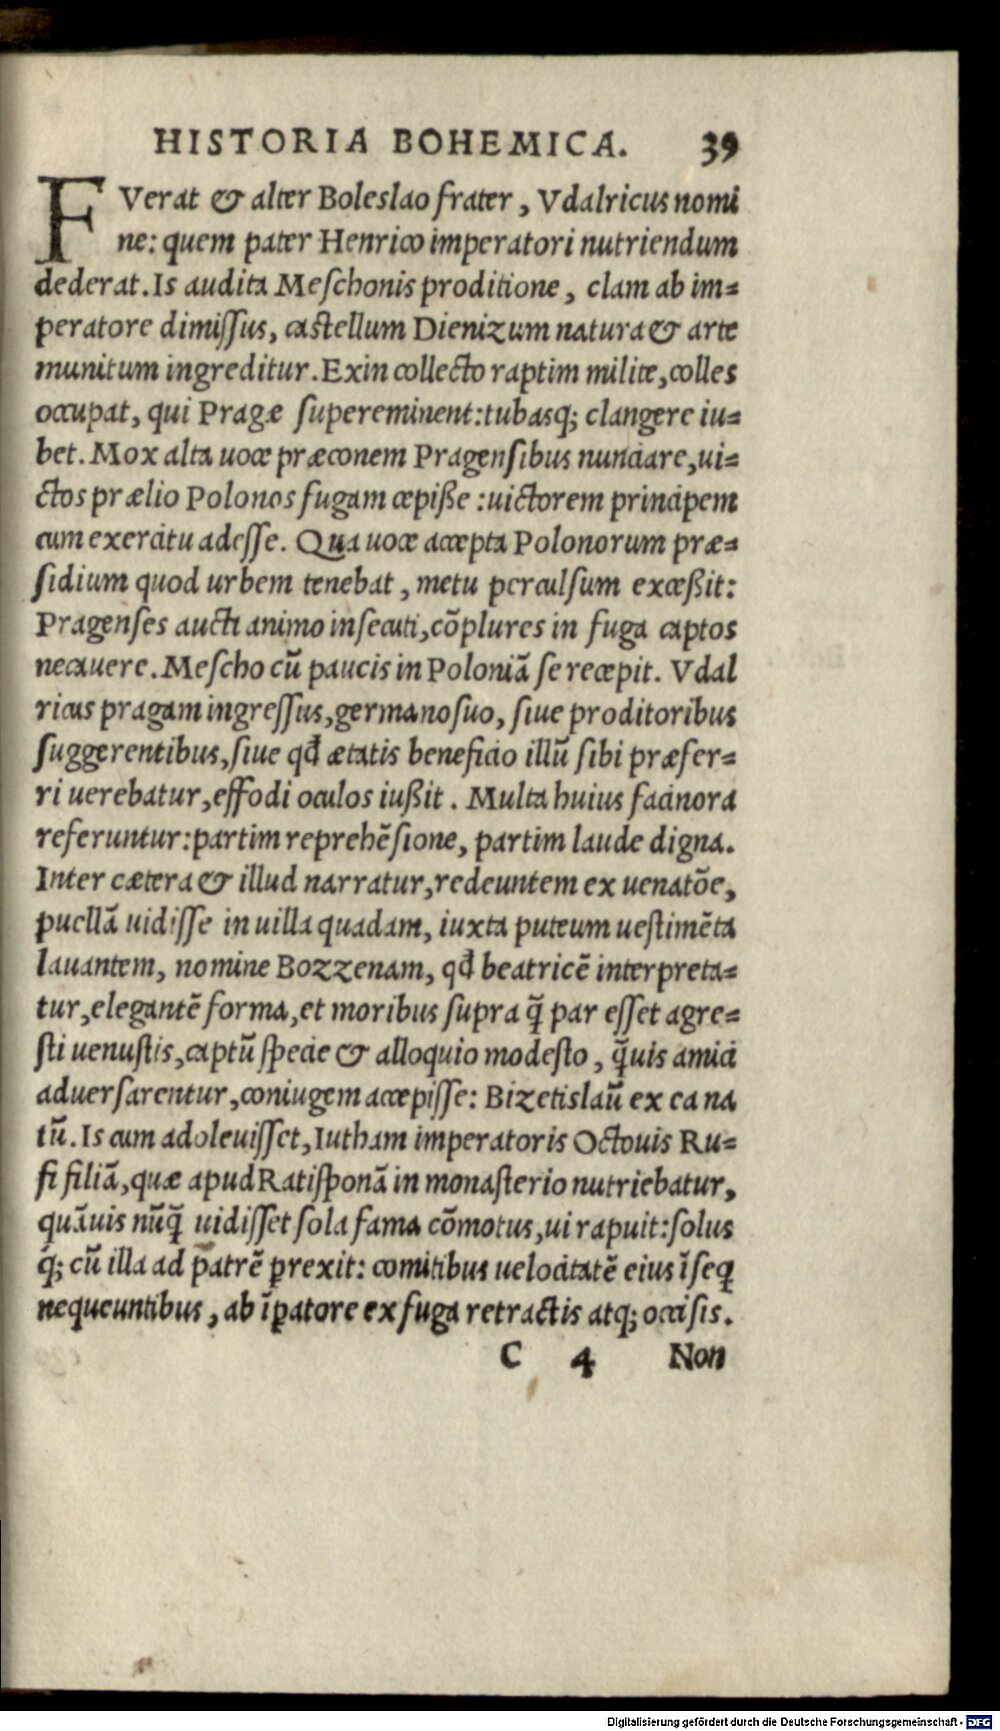 HISTORIA BOHEMICA. 39
FVerat & alter Boleslao frater, Vdalricus nomi
ne: quem pater Henrico imperatori nutriendum
dederat. Is audita Meſchonis proditione, clam ab im=
peratore dimiſſus, caſtellum Dienizum natura & arte
munitum ingreditur. Exin collecto raptim milite, colles
occupat, qui Pragæ ſupereminent: tubasq; clangere iu=
bet. Mox alta uoce præconem Pragenſibus nunciare, ui=
ctos prælio Polonos fugam cœpiße: uictorem principem
cum exercitu adeſſe. Qua uoce accepta Polonorum præ=
ſidium quod urbem tenebat, metu perculſum exceßit:
Pragenſes aucti animo inſecuti, cõplures in fuga captos
necauere. Meſcho cũ paucis in Poloniã ſe recepit. Vdal
ricus pragam ingreſſus, germano ſuo, ſiue proditoribus
ſuggerentibus, ſiue qđ ætatis beneficio illũ ſibi præfer=
ri uerebatur, effodi oculos iußit. Multa huius facinora
referuntur: partim reprehẽſione, partim laude digna.
Inter cætera & illud narratur, redeuntem ex uenatõe,
puellã uidiſſe in uilla quadam, iuxta puteum ueſtimẽta
lauantem, nomine Bozzenam, qđ beatricẽ interpreta=
tur, elegantẽ forma, et moribus ſupra q̃ par eſſet agre=
ſti uenuſtis, captũ ſpecie & alloquio modeſto, q̃uis amici
aduerſarentur, coniugem accepiſſe: Bizetislaũ ex ea na
tũ. Is cum adoleuiſſet, Iutham imperatoris Octouis Ru=
fi filiã, quæ apud Ratiſponã in monaſterio nutriebatur,
quãuis nũq̃ uidiſſet ſola fama cõmotus, ui rapuit: ſolus
q́; cũ illa ad patrẽ ꝑrexit: comitibus uelocitatẽ eius ĩſeq
nequeuntibus, ab ĩꝑatore ex fuga retractis atq; occiſis.
C 4 Non
Digitalisierung gefördert durch die Deutsche Forschungsgemeinschaft - DFG